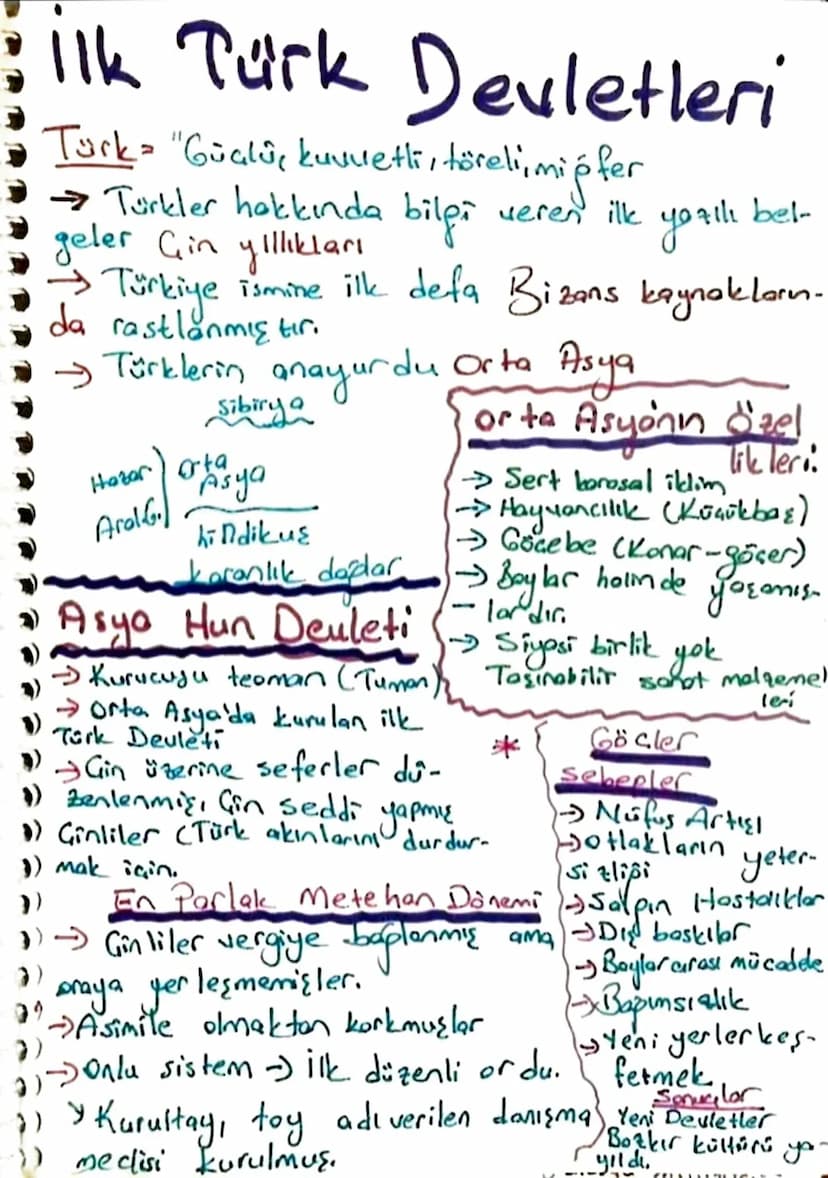 İlk Türk Devletleri
Türk= "Güçlü, kuvvetli, töreli, miğfer
→ Türkler hakkında bilgi veren ilk yazılı bel-
geler Çin yıllıkları
→ Türkiye ismine ilk defa Bizans kaynakların-
da rastlanmıştır.
→ Türklerin anayurdu Orta Asya
Sibirya
Hazar
Aral G.
Orta
Asya
hindikuş
karanlık dağlar
Orta Asya'nın Özel
likleri:
→ Sert karasal iklim
→ Hayvancılık (Küçükbaş)
→ Göçebe (Konar-göçer)
→ Boylar halinde yaşamış-
lardır.
→ Siyasi birlik yok
Taşınabilir sanat malzeme
leri
Asya Hun Devleti
→ Kurucusu teoman (Tuman)
→ Orta Asya'da kurulan ilk
Türk Devleti
→ Çin üzerine seferler dü-
zenlenmiş, Çin seddi yapmış
Çinliler (Türk akınlarını durdur-
mak için.
En Parlak Metehan Dönemi
→ Çinliler vergiye bağlanmış ama
oraya yerleşmemişler.
→ Asimile olmaktan korkmuşlar
→ Onlu sistem → ilk düzenli ordu.
Kurultay, toy adı verilen danışma
meclisi kurulmuş.
* Göçler
Sebepler
→ Nüfus Artışı
→ Otlakların yeter-
sizliği
→ Salgın Hastalıklar
→ Dış baskılar
→ Boylar arası mücadele
→ Bağımsızlık
→ Yeni yerler keş-
fetmek
Sonuçlar
Yeni Devletler
Bozkır kültürü ya-
yıldı.